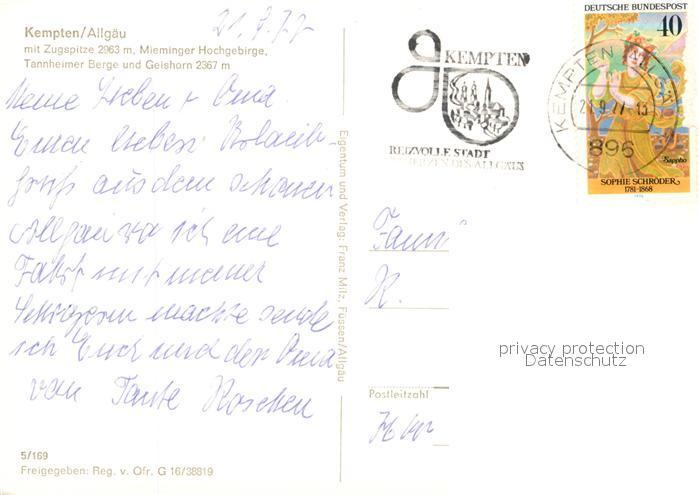 21.9.77
Kempten/Allgäu
mit Zugspitze 2963 m, Mieminger Hochgebirge,
Tannheimer Berge und Geishorn 2367 m
Meine Lieben u Oma.
Euren lieben
aus dem schönen
Allgäu wo ich eine
Fahrt mit meiner
machte sende
ich Euch und der Oma
von Tante Röschen
5/169
Freigegeben: Reg. v. Ofr. G 16/38819
Eigentum und Verlag: Franz Milz, Füssen/Allgäu
KEMPTEN
REIZVOLLE STADT
IM HERZEN DES ALLGÄUS
DEUTSCHE BUNDESPOST
40
Sappho
SOPHIE SCHRÖDER
1781-1868
1976
KEMPTEN ALLGÄU
21.9.77-13
896
Fami
K.
privacy protection
Datenschutz
Postleitzahl